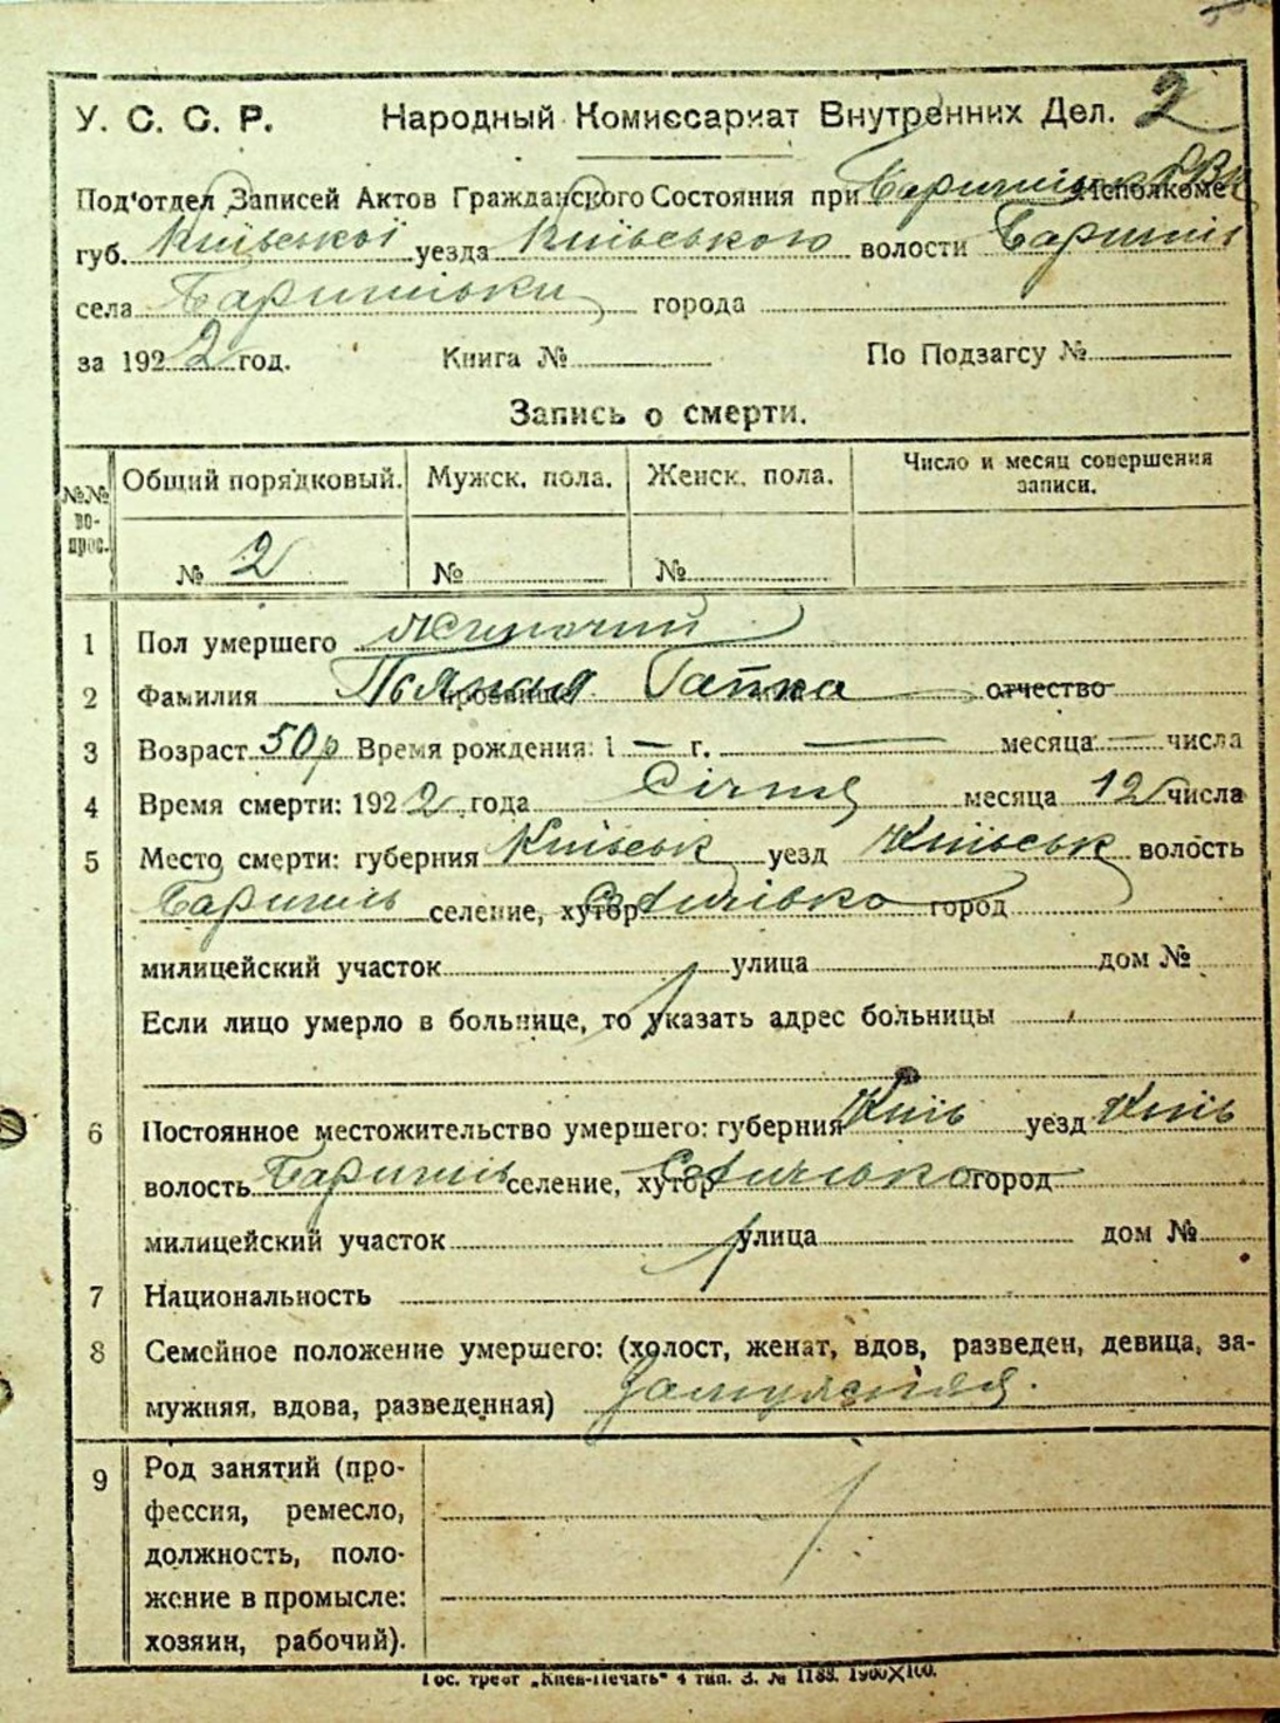 У. С. С. Р. Народный Комиссариат Внутренних Дел. 2
Под'отдел Записей Актов Гражданского Состояния при Исполкоме
губ. Київської уезда Київського волости Баришів
села Баришівки города
за 1922 год. Книга № По Подзагсу №
Запись о смерти.
№№ вопрос. Общий порядковый. Мужск. пола. Женск. пола. Число и месяц совершения записи.
№ 2 № №
1 Пол умершего жиночий
2 Фамилия Гапка отчество
3 Возраст 50 р Время рождения: 1 — г. — месяца — числа
4 Время смерти: 1922 года Січня месяца 12 числа
5 Место смерти: губерния Київськ уезд Київськ волость
Баришів селение, хутор город
милицейский участок улица дом №
Если лицо умерло в больнице, то указать адрес больницы
6 Постоянное местожительство умершего: губерния Київ уезд Київ
волость Баришів селение, хутор город
милицейский участок улица дом №
7 Национальность
8 Семейное положение умершего: (холост, женат, вдов, разведен, девица, за-
мужняя, вдова, разведенная) замужняя.
9 Род занятий (про-
фессия, ремесло,
должность, поло-
жение в промысле:
хозяин, рабочий).
Гос. трест „Киев-Печать" 4 тип. З. № 1188. 1900×100.